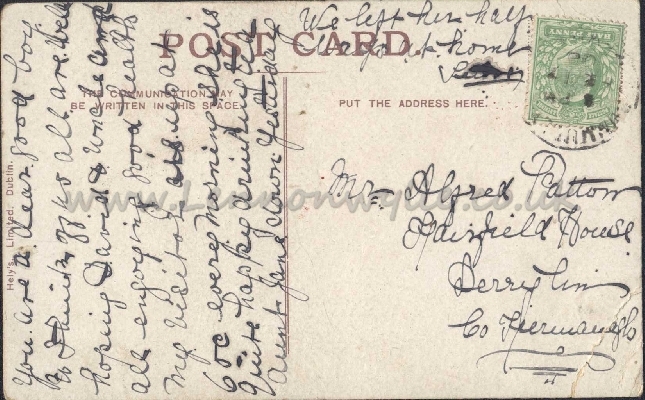 POST CARD
THE COMMUNICATION MAY
BE WRITTEN IN THIS SPACE
PUT THE ADDRESS HERE.
Hely's, Limited, Dublin.
HALF PENNY
www.Lennonwylie.co.uk
You are a dear good boy
to think of us all are well
hoping David & uncle and
all enjoying good health
my visitor at
6 oc every morning she is
quite happy drinking tea
Aunt Jane down yesterday
We left her half
at home
Mr Alfred Patton
Fairfield House
Derrylin
Co Fermanagh